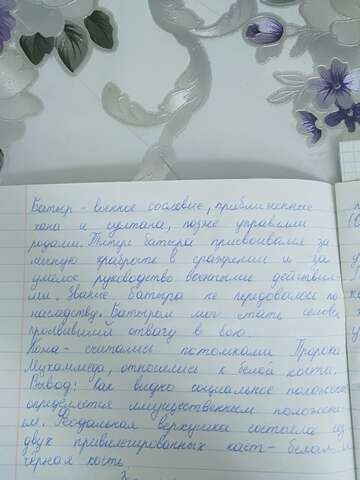 Батыр - военное сословие, приближенные
хана и султана, позже управляли
родами. Титул батыра присваивался за
личную храбрость в сражении и за
умелое руководство военными действия-
ми. Звание батыра не передовалось по
наследству. Батыром мог стать человек,
проявивший отвагу в бою
Кожа - считались потомками Пророка
Мухаммеда, относились к белой кости.
Вывод: Как видно социальное положение
определяется имущественным положени-
ем. Феодальная верхушка состояла из
двух привилегированных каст - белая и
чёрная кость